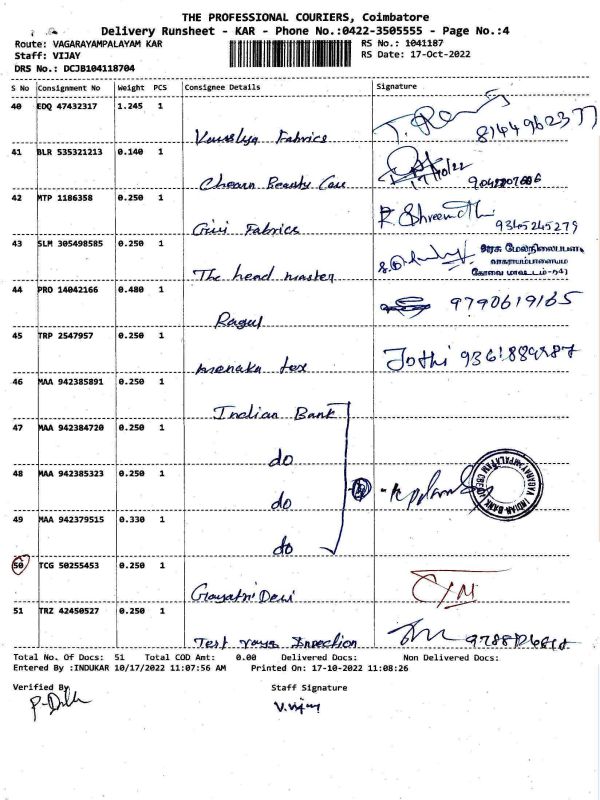 THE PROFESSIONAL COURIERS, Coimbatore
Delivery Runsheet - KAR - Phone No.:0422-3505555 - Page No.:4
Route: VAGARAYAMPALAYAM KAR RS No.: 1041187
Staff: VIJAY RS Date: 17-Oct-2022
DRS No.: DCJB104118704
S No Consignment No Weight PCS Consignee Details Signature
40 EDQ 47432317 1.245 1
Fabrics
41 BLR 535321213 0.140 1
17/10/22
Beauty Care
42 MTP 1186358 0.250 1
Fabrics 9345245279
43 SLM 305498585 0.250 1
The head master
44 PRO 14042166 0.480 1
Ragul 9790619165
45 TRP 2547957 0.250 1
menaka tex Jothi
46 MAA 942385891 0.250 1
Indian Bank
47 MAA 942384720 0.250 1
do
48 MAA 942385323 0.250 1
do
49 MAA 942379515 0.330 1
do
50 TCG 50255453 0.250 1
Gayathri Devi
51 TRZ 42450527 0.250 1
Total No. Of Docs: 51 Total COD Amt: 0.00 Delivered Docs: Non Delivered Docs:
Entered By :INDUKAR 10/17/2022 11:07:56 AM Printed On: 17-10-2022 11:08:26
Verified By Staff Signature
V.vijay